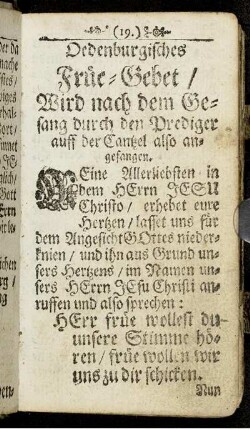 (19.)
Oedenburgisches
Früe-Gebet /
Wird nach dem Ge-
sang durch den Prediger
auff der Cantzel also an-
gefangen.
MEine Allerliebsten in
dem HErrn JESU
Christo / erhebet eure
Hertzen / lasset uns für
dem Angesicht GOttes nieder-
knien / und ihn aus Grund un-
sers Hertzens / im Namen un-
sers HErrn JEsu Christi an-
ruffen und also sprechen:
HErr früe wollest du
unsere Stimme hö-
ren / früe wollen wir
uns zu dir schicken.
Nun